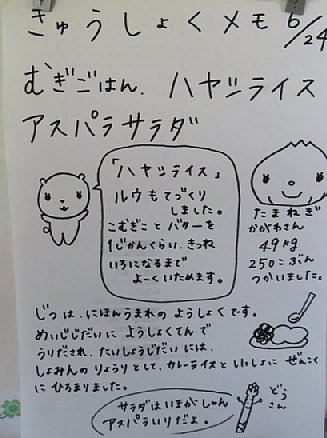 きゅうしょくメモ 6/24
むぎごはん、ハヤシライス
アスパラサラダ
「ハヤシライス」
ルウもてづくり
しました。
こむぎこと バターを
1じかんくらい、きつね
いろになるまで
よーくいためます。
たまねぎ
かがわさん
49kg
250こぶん
つかいました。
じつは、にほんうまれの ようしょくです。
めいじじだいに ようしょくてんで
うりだされ、たいしょうじだいには、
しょみんの りょうりとして、カレーライスと いっしょに ぜんこく
に ひろまりました。
サラダは いまが しゅん
アスパラいりだよ。
どう
さん